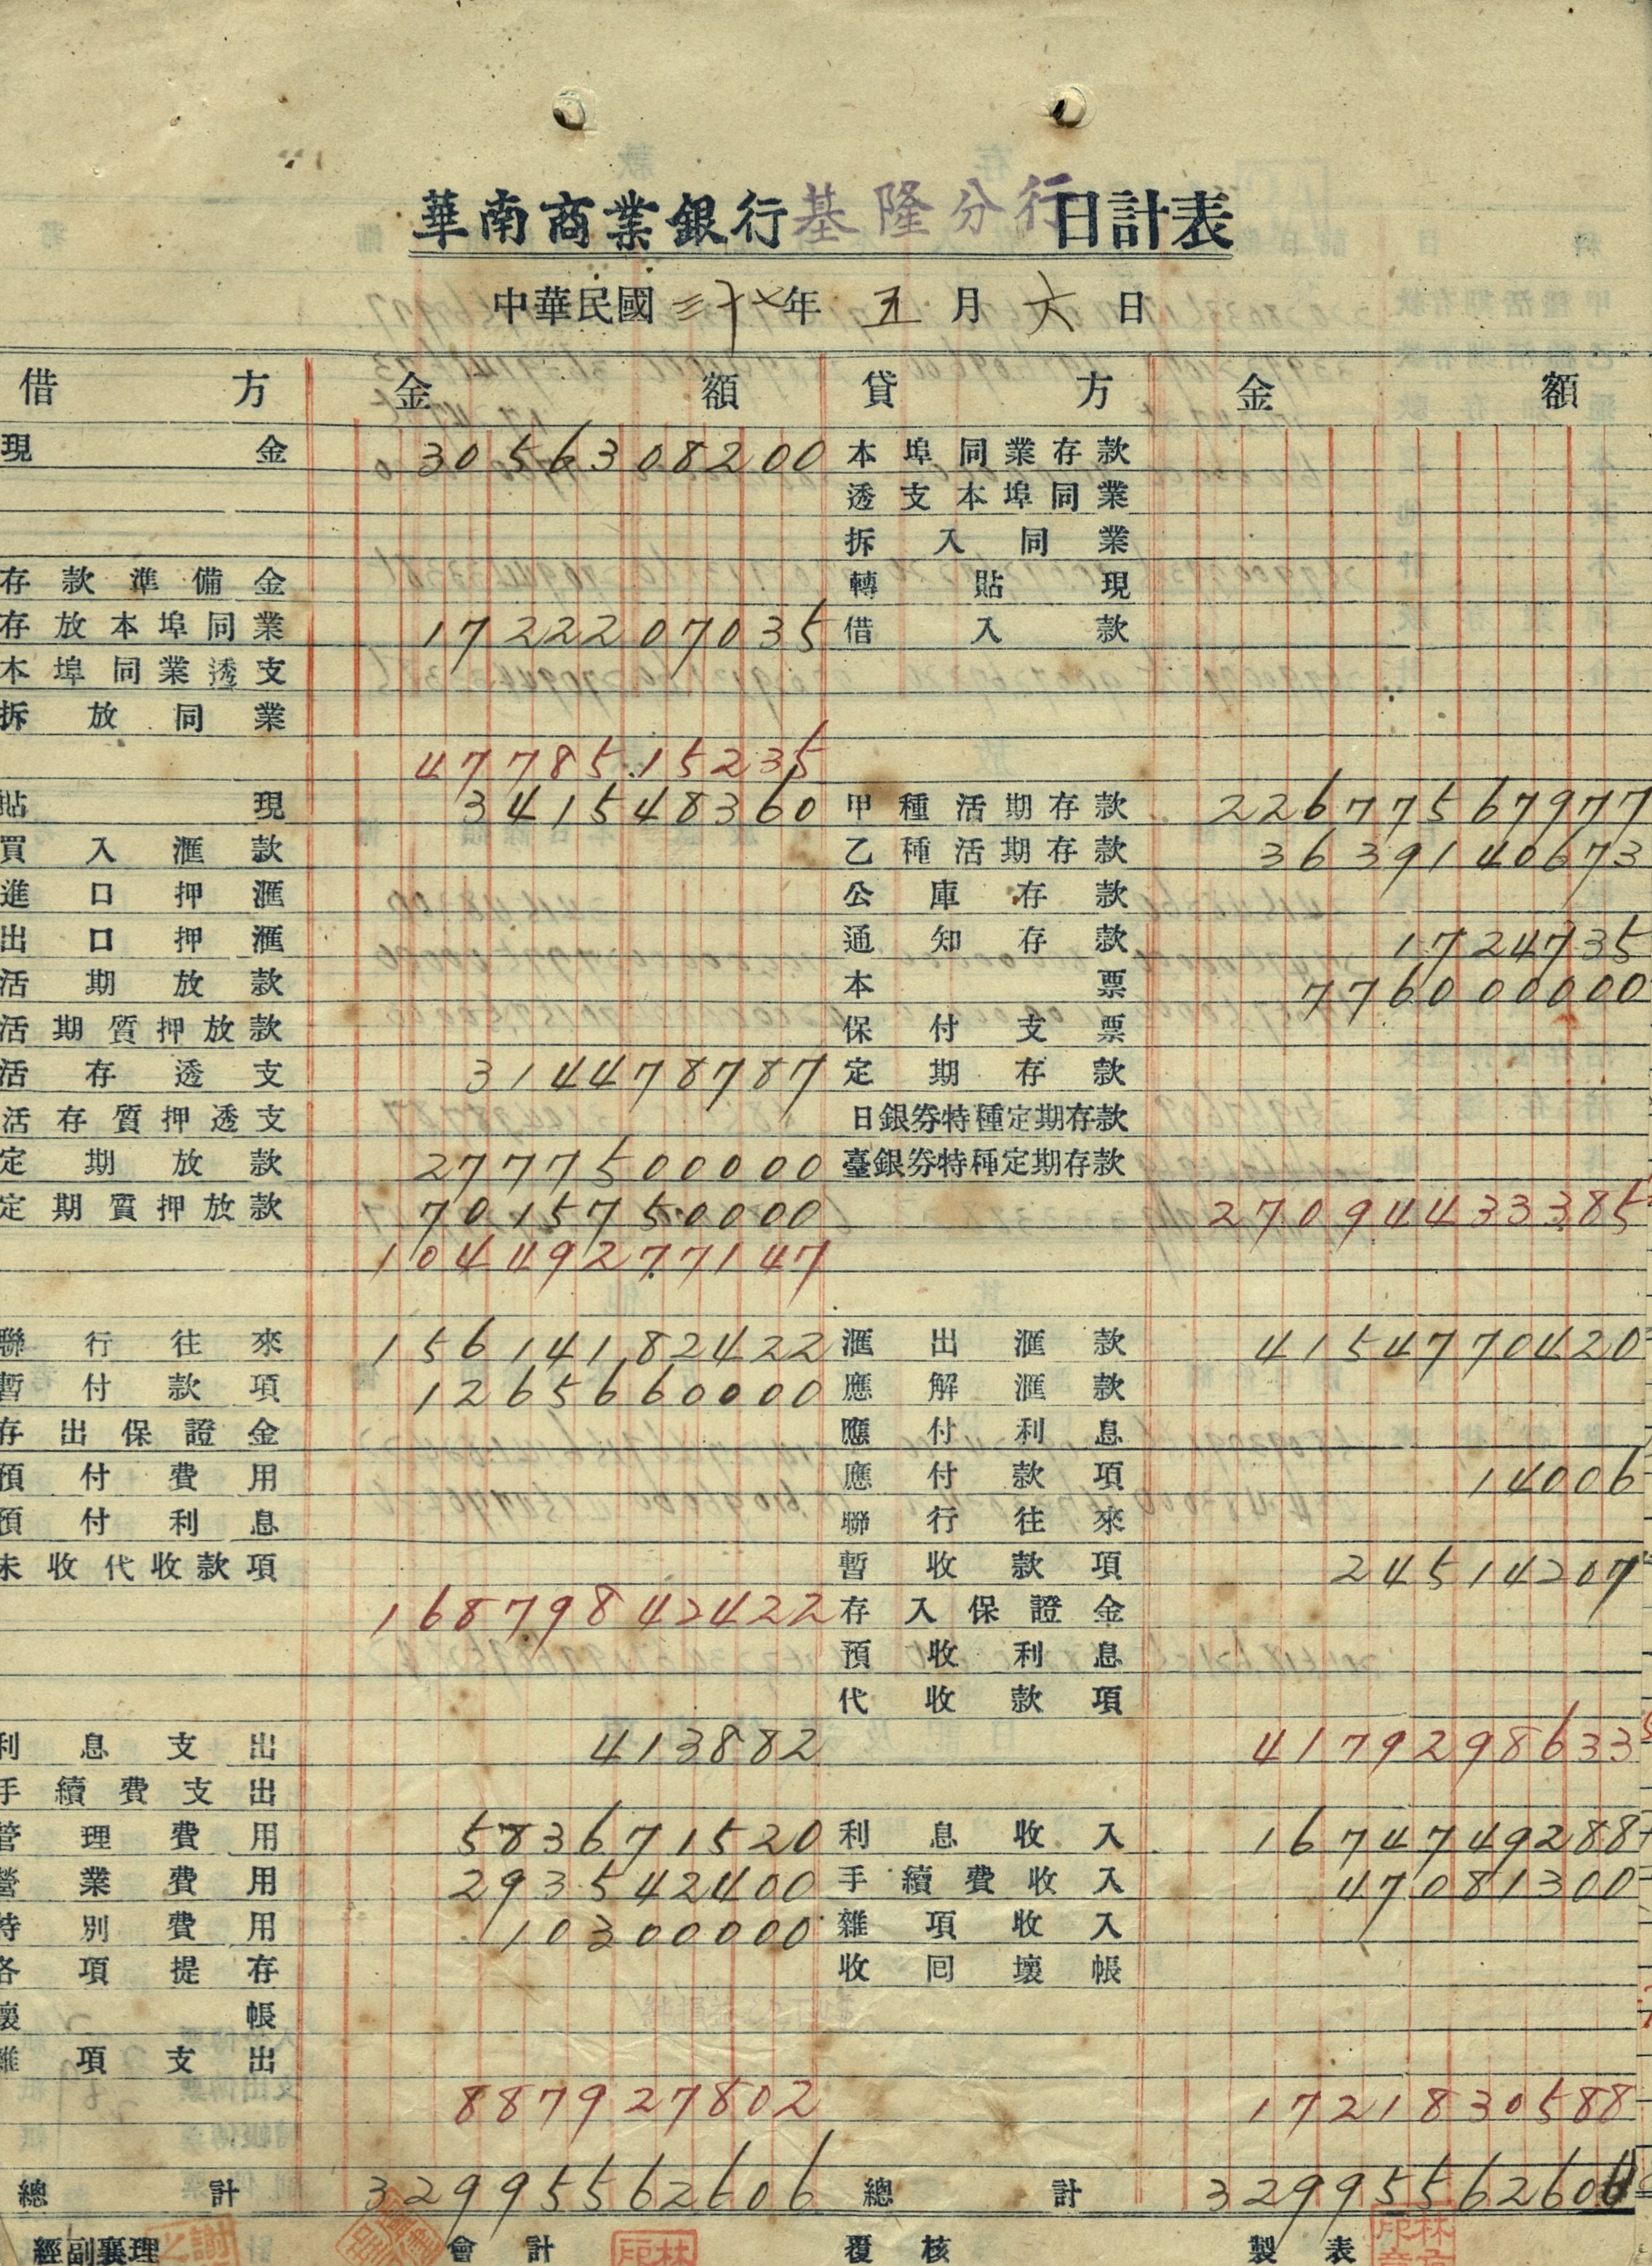 華南商業銀行基隆分行日計表
中華民國三十七年 五月六日
借方 金額 貸方 金額
現金 3056308200 本埠同業存款
透支本埠同業
拆入同業
存款準備金 轉貼現
存放本埠同業 1722207035 借入款
本埠同業透支
拆放同業
4778515235
貼現 341548360 甲種活期存款 22677567977
買入滙款 乙種活期存款 3639140673
進口押滙 公庫存款
出口押滙 通知存款 1724735
活期放款 本票 776000000
活期質押放款 保付支票
活存透支 314478787 定期存款
活存質押透支 日銀券特種定期存款
定期放款 2777500000 臺銀券特種定期存款
定期質押放款 7015750000 27094433385
10449277147
聯行往來 15614182422 滙出滙款 4154770420
暫付款項 1265660000 應解滙款
存出保證金 應付利息
預付費用 應付款項 14006
預付利息 聯行往來
未收代收款項 暫收款項 24514207
16879842422 存入保證金
預收利息
代收款項
利息支出 413882 4179298633
手續費支出
管理費用 583671520 利息收入 1674749288
營業費用 293542400 手續費收入 47081300
特別費用 10300000 雜項收入
各項提存 收回壞帳
壞帳
雜項支出
887927802 1721830588
總計 32995562606 總計 32995562606
經副襄理 會計 覆核 製表